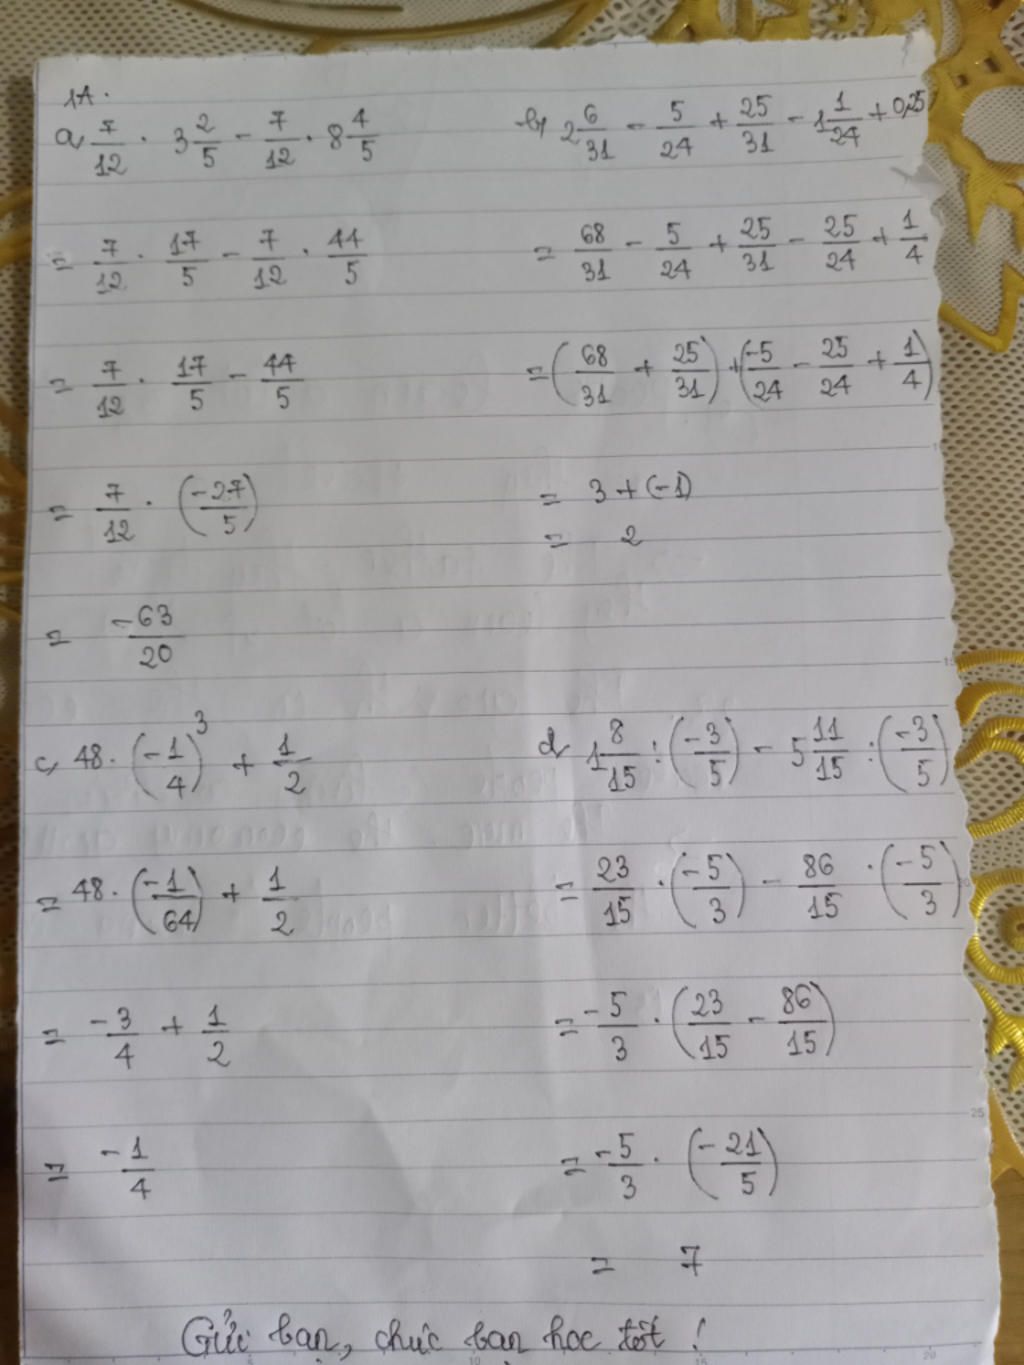 1A.
a, 7/12 . 3 2/5 - 7/12 . 8 4/5
= 7/12 . 17/5 - 7/12 . 44/5
= 7/12 . 17/5 - 44/5
= 7/12 . (-27/5)
= -63/20
b, 2 6/31 - 5/24 + 25/31 - 1 1/24 + 0,25
= 68/31 - 5/24 + 25/31 - 25/24 + 1/4
= (68/31 + 25/31) + (-5/24 - 25/24 + 1/4)
= 3 + (-1)
= 2
c, 48 . (-1/4)^3 + 1/2
= 48 . (-1/64) + 1/2
= -3/4 + 1/2
= -1/4
d, 1 8/15 : (-3/5) - 5 11/15 : (-3/5)
= 23/15 . (-5/3) - 86/15 . (-5/3)
= -5/3 . (23/15 - 86/15)
= -5/3 . (-21/5)
= 7
Gửi bạn, chúc bạn học tốt !